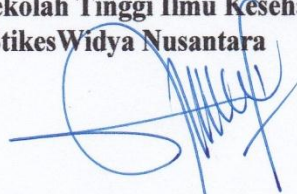 Sekolah Tinggi Ilmu Keseha
Stikes Widya Nusantara